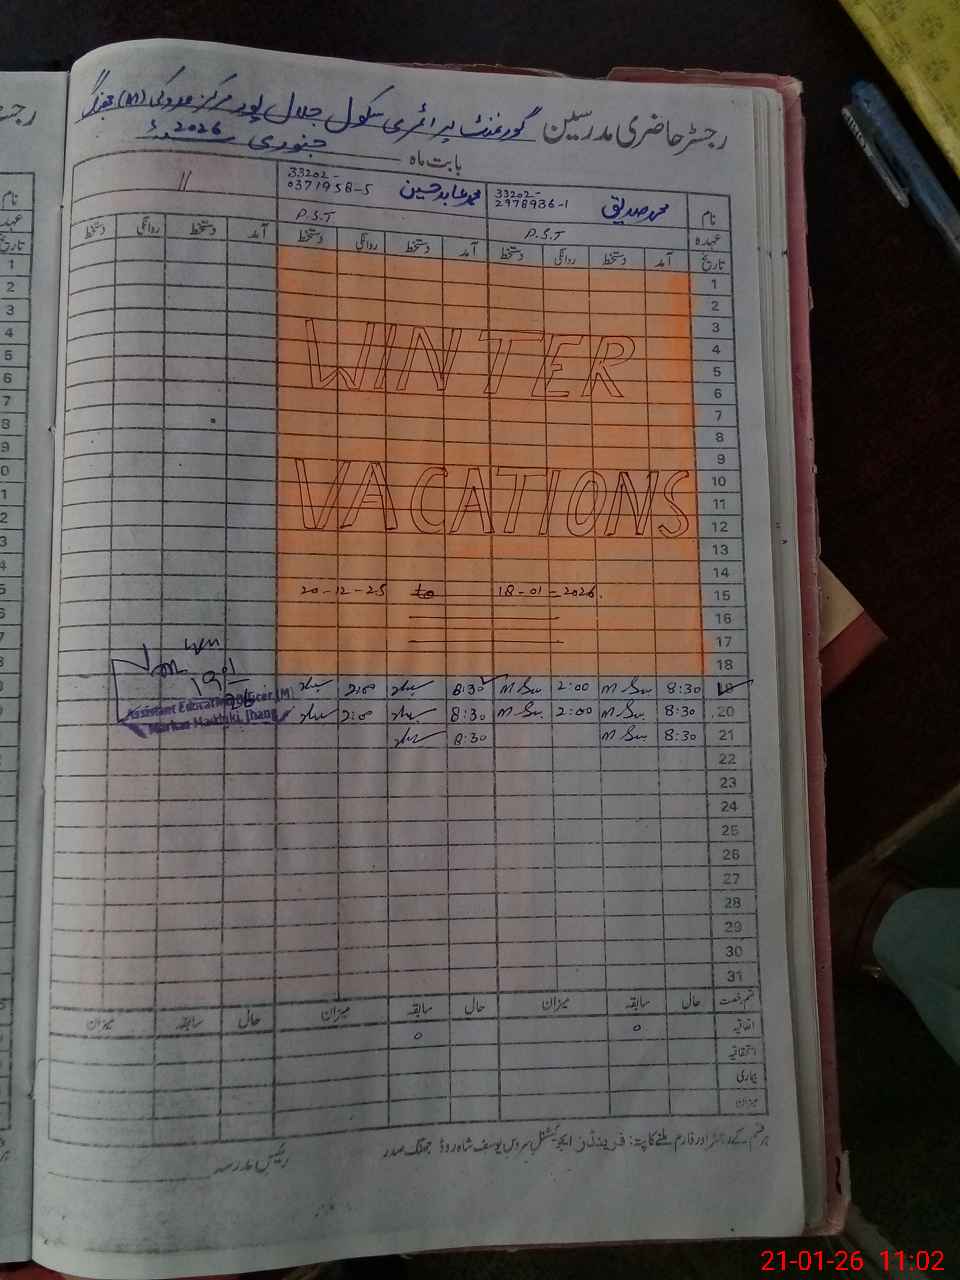 رجسٹر حاضری مدرسین گورنمنٹ پرائمری سکول جلال پور مرکز مدوکی (M) جھنگ
بابت ماہ جنوری 2026ء
نام محمد صدیق 33202-2978936-1 محمد عابد حسین 33202-0371958-5 //
عہدہ P.S.T P.S.T
تاریخ آمد دستخط روانگی دستخط آمد دستخط روانگی دستخط آمد دستخط روانگی دستخط
1
2
3
4
5
6
7
8
9
10
11
12
13
14
15
16
17
18
WINTER
VACATIONS
20-12-25 to 18-01-2026.
19 8:30 2:00 8:30 2:00
20 8:30 2:00 8:30 2:00
21 8:30 8:30
22
23
24
25
26
27
28
29
30
31
19-01-26
Assistant Education Officer (M)
Markaz Maduki, Jhang
قسم رخصت حال سابقہ میزان حال سابقہ میزان حال سابقہ میزان
اتفاقیہ 0 0
استحقاقیہ
بیماری
میزان
ہر قسم کے رجسٹر اور فارم ملنے کا پتہ: فرینڈز ایجوکیشنل سروس یوسف شاہ روڈ جھنگ صدر
رئیس مدرسہ
21-01-26 11:02